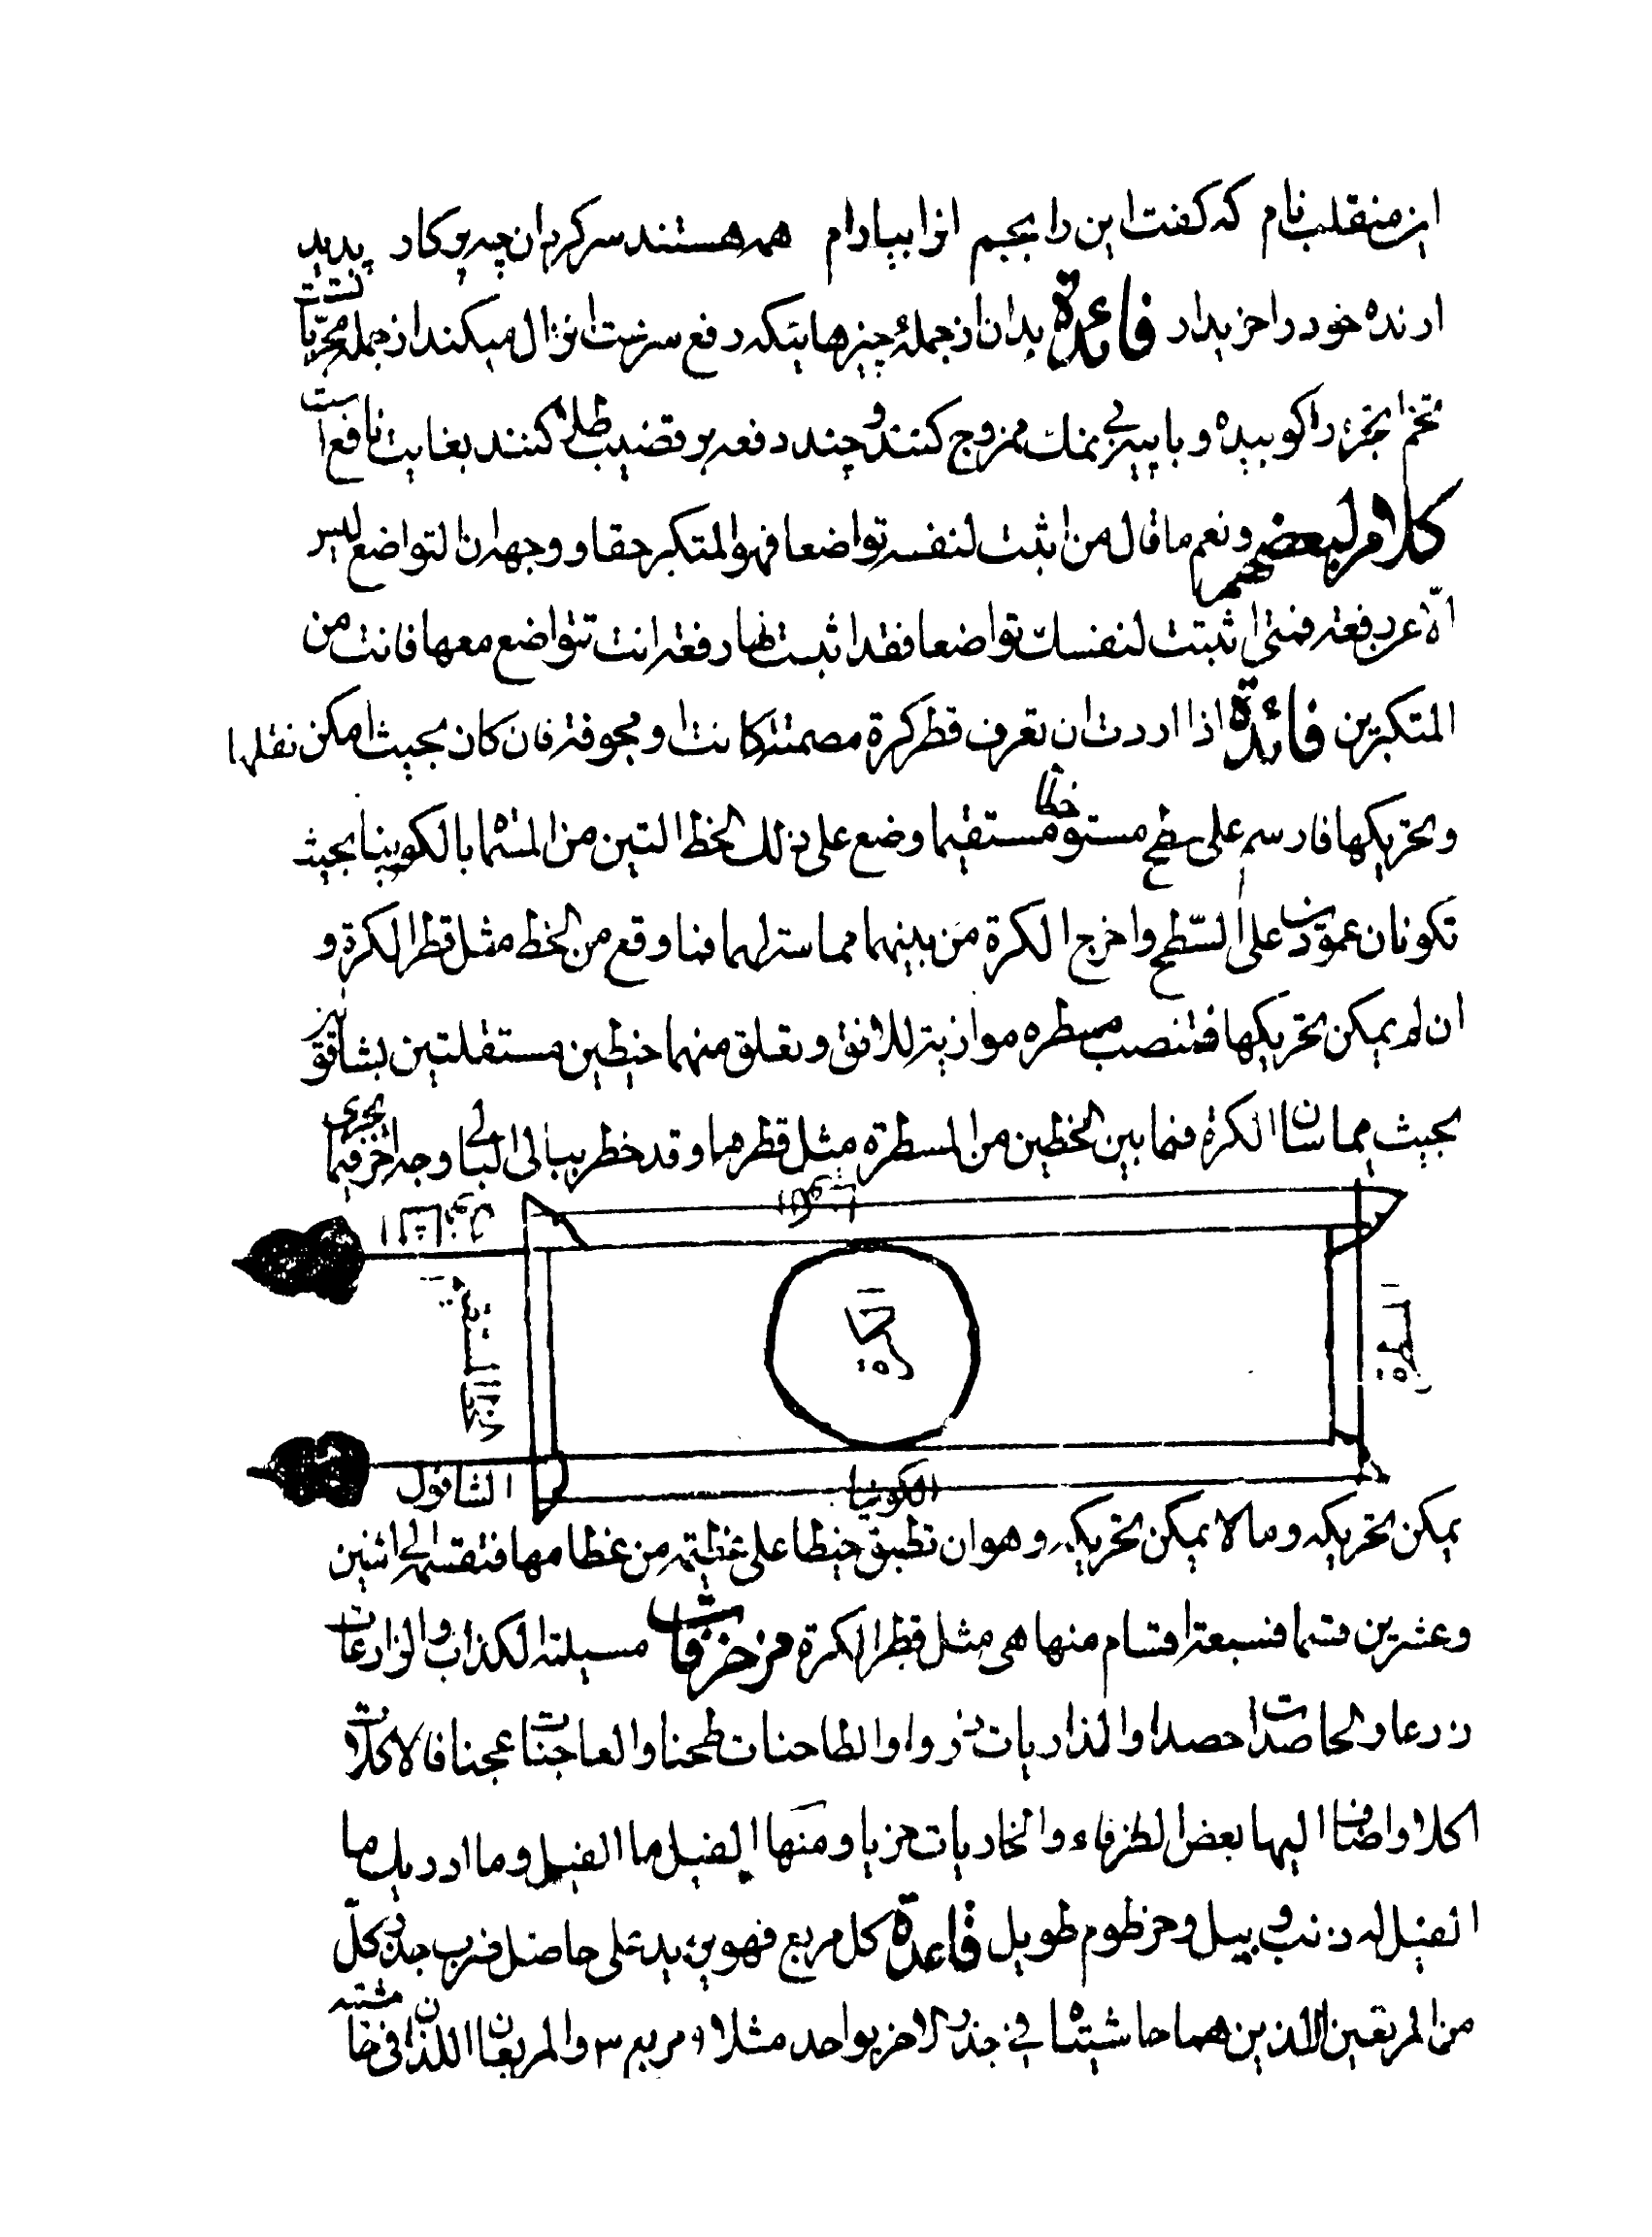 این منقلب نام که گفت این را بجم انرا بیارام همه هستند سرگردان چه پرکار پدید
ارنده خود را خریدار فائدة بدان از جملهٔ چیزهائیکه دفع سرعت انزال میکند از جمله مجرّبا تست
تخم انجره را کوبیده و با پیه بی نمك ممزوج کنند و چند دفعه بر قضیب طلا کنند بغایت نافع است
كلام لبعضهم ونعم ما قال من اثبت لنفسه تواضعا فهو المتكبر حقا ووجهه ان التواضع ليس
الّا عن رفعة فمتى اثبتت لنفسك تواضعا فقد اثبت لها رفعة انت تتواضع معها فانت من
المتكبرين فائدة اذا اردت ان تعرف قطر كرة مصمتة كانت او مجوفة فان كان بحيث امكن نقلها
وتحريكها فارسم على سطح مستو خطا مستقيما وضع على ذلك الخط التين من المسماة بالكونيا بحيث
تكونان عمودان على السّطح واخرج الكرة من بينهما مماسة لهما فما وقع من الخط مثل قطر الكرة و
ان لم يمكن تحريكها فتنصب مسطره موازية للافق وتعلق منهما خيطين مستقلتين بشاقولين
بحيث يماسان الكرة فما بين الخطين من المسطرة مثل قطرها وقد خطر ببالى البالى وجه اخر فيما يجرى
الكونيا
الشاقول
الخط المستقيم
الكرة
المسطرة
الشاقول
الكونيا
يمكن تحريكه وما لا يمكن تحريكه وهو ان تطبق خيطا على عظيمة من عظامها فتقسمه الى اثنين
وعشرين قسما فسبعة اقسام منها هى مثل قطر الكرة مزخرفات مسيلمة الكذاب والزارعات
زرعا والحاصدات حصدا والذاريات ذروا والطاحنات طحنا والعاجنات عجنا فالاكلات
اكلا واضاف اليها بعض الظرفاء والخاريات خريا ومنها الفيل ما الفيل وما ادريك ما
الفيل له ذنب وبيل وخرطوم طويل قاعدة كل مربع فهو يزيد على حاصل ضرب جذر كلّ
من المربعين اللذين هما حاشيتاه في جذر الاخر بواحد مثلا ٩ مربع ٣ والمربعان اللذان فى حاشيته